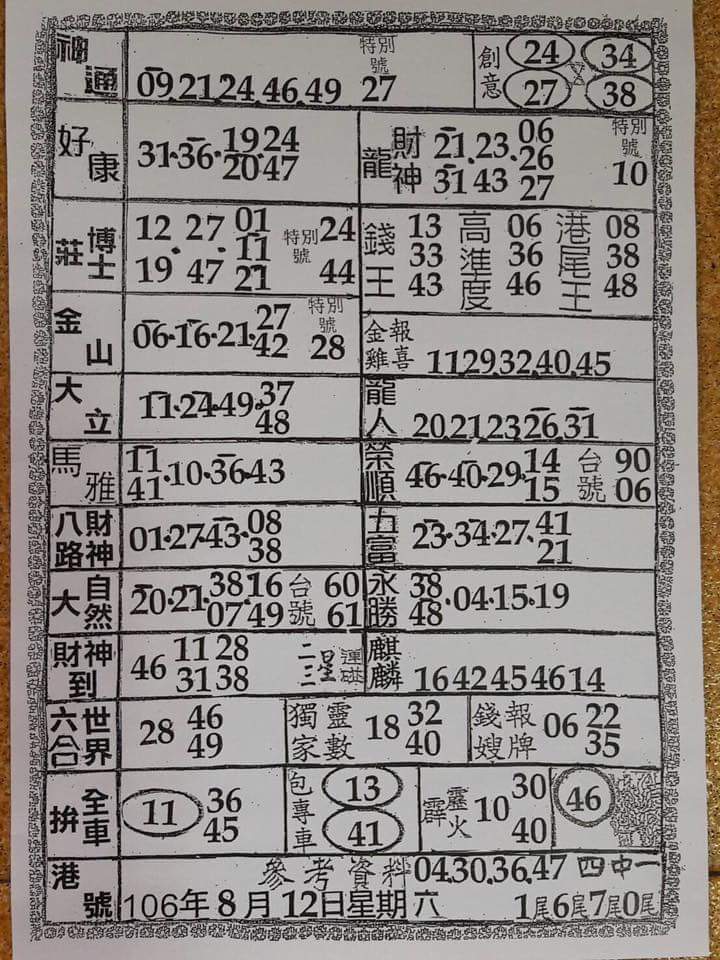 神通 09.21.24.46.49 特別號 27
創意 24 34 27 38
好康 31.36. 19 24 20 47
龍 財神 21.23. 06 31.43 26 27 特別號 10
莊博士 12 27 01 19 47 11 21 特別號 24 44
錢王 13 33 43 高進度 06 36 46 港尾王 08 38 48
金山 06.16.21. 27 42 特別號 28
金雞報喜 11.29.32.40.45
大立 11.24.49. 37 48
龍人 20.21.23.26.31
馬雅 11 41 .10.36.43
榮順 46.40.29. 14 15 台號 90 06
八路財神 01.27.43. 08 38
五富 23.34.27. 41 21
大自然 20.21. 38 16 07 49 台號 60 61
永勝 38 48 .04.15.19
財神到 46 11 28 31 38 二三星連碰
麒麟 16 42 45 46 14
六合世界 28 46 49
獨家靈數 18 32 40
錢嫂報牌 06 22 35
拚全車 11 36 45
包專車 13 41
霹靂火 10 30 40
46
港號 參考資料 04.30.36.47 四中一
106年8月12日星期六 1尾6尾7尾0尾